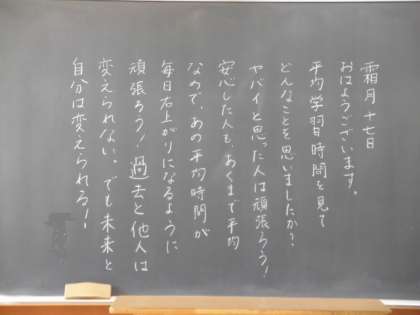 霜月十七日
おはようございます。
平均学習時間を見て
どんなことを思いましたか？
ヤバイと思った人は頑張ろう！
安心した人も、あくまで平均
なので、あの平均時間が
毎日右上がりになるように
頑張ろう！過去と他人は
変えられない。でも未来と
自分は変えられる！